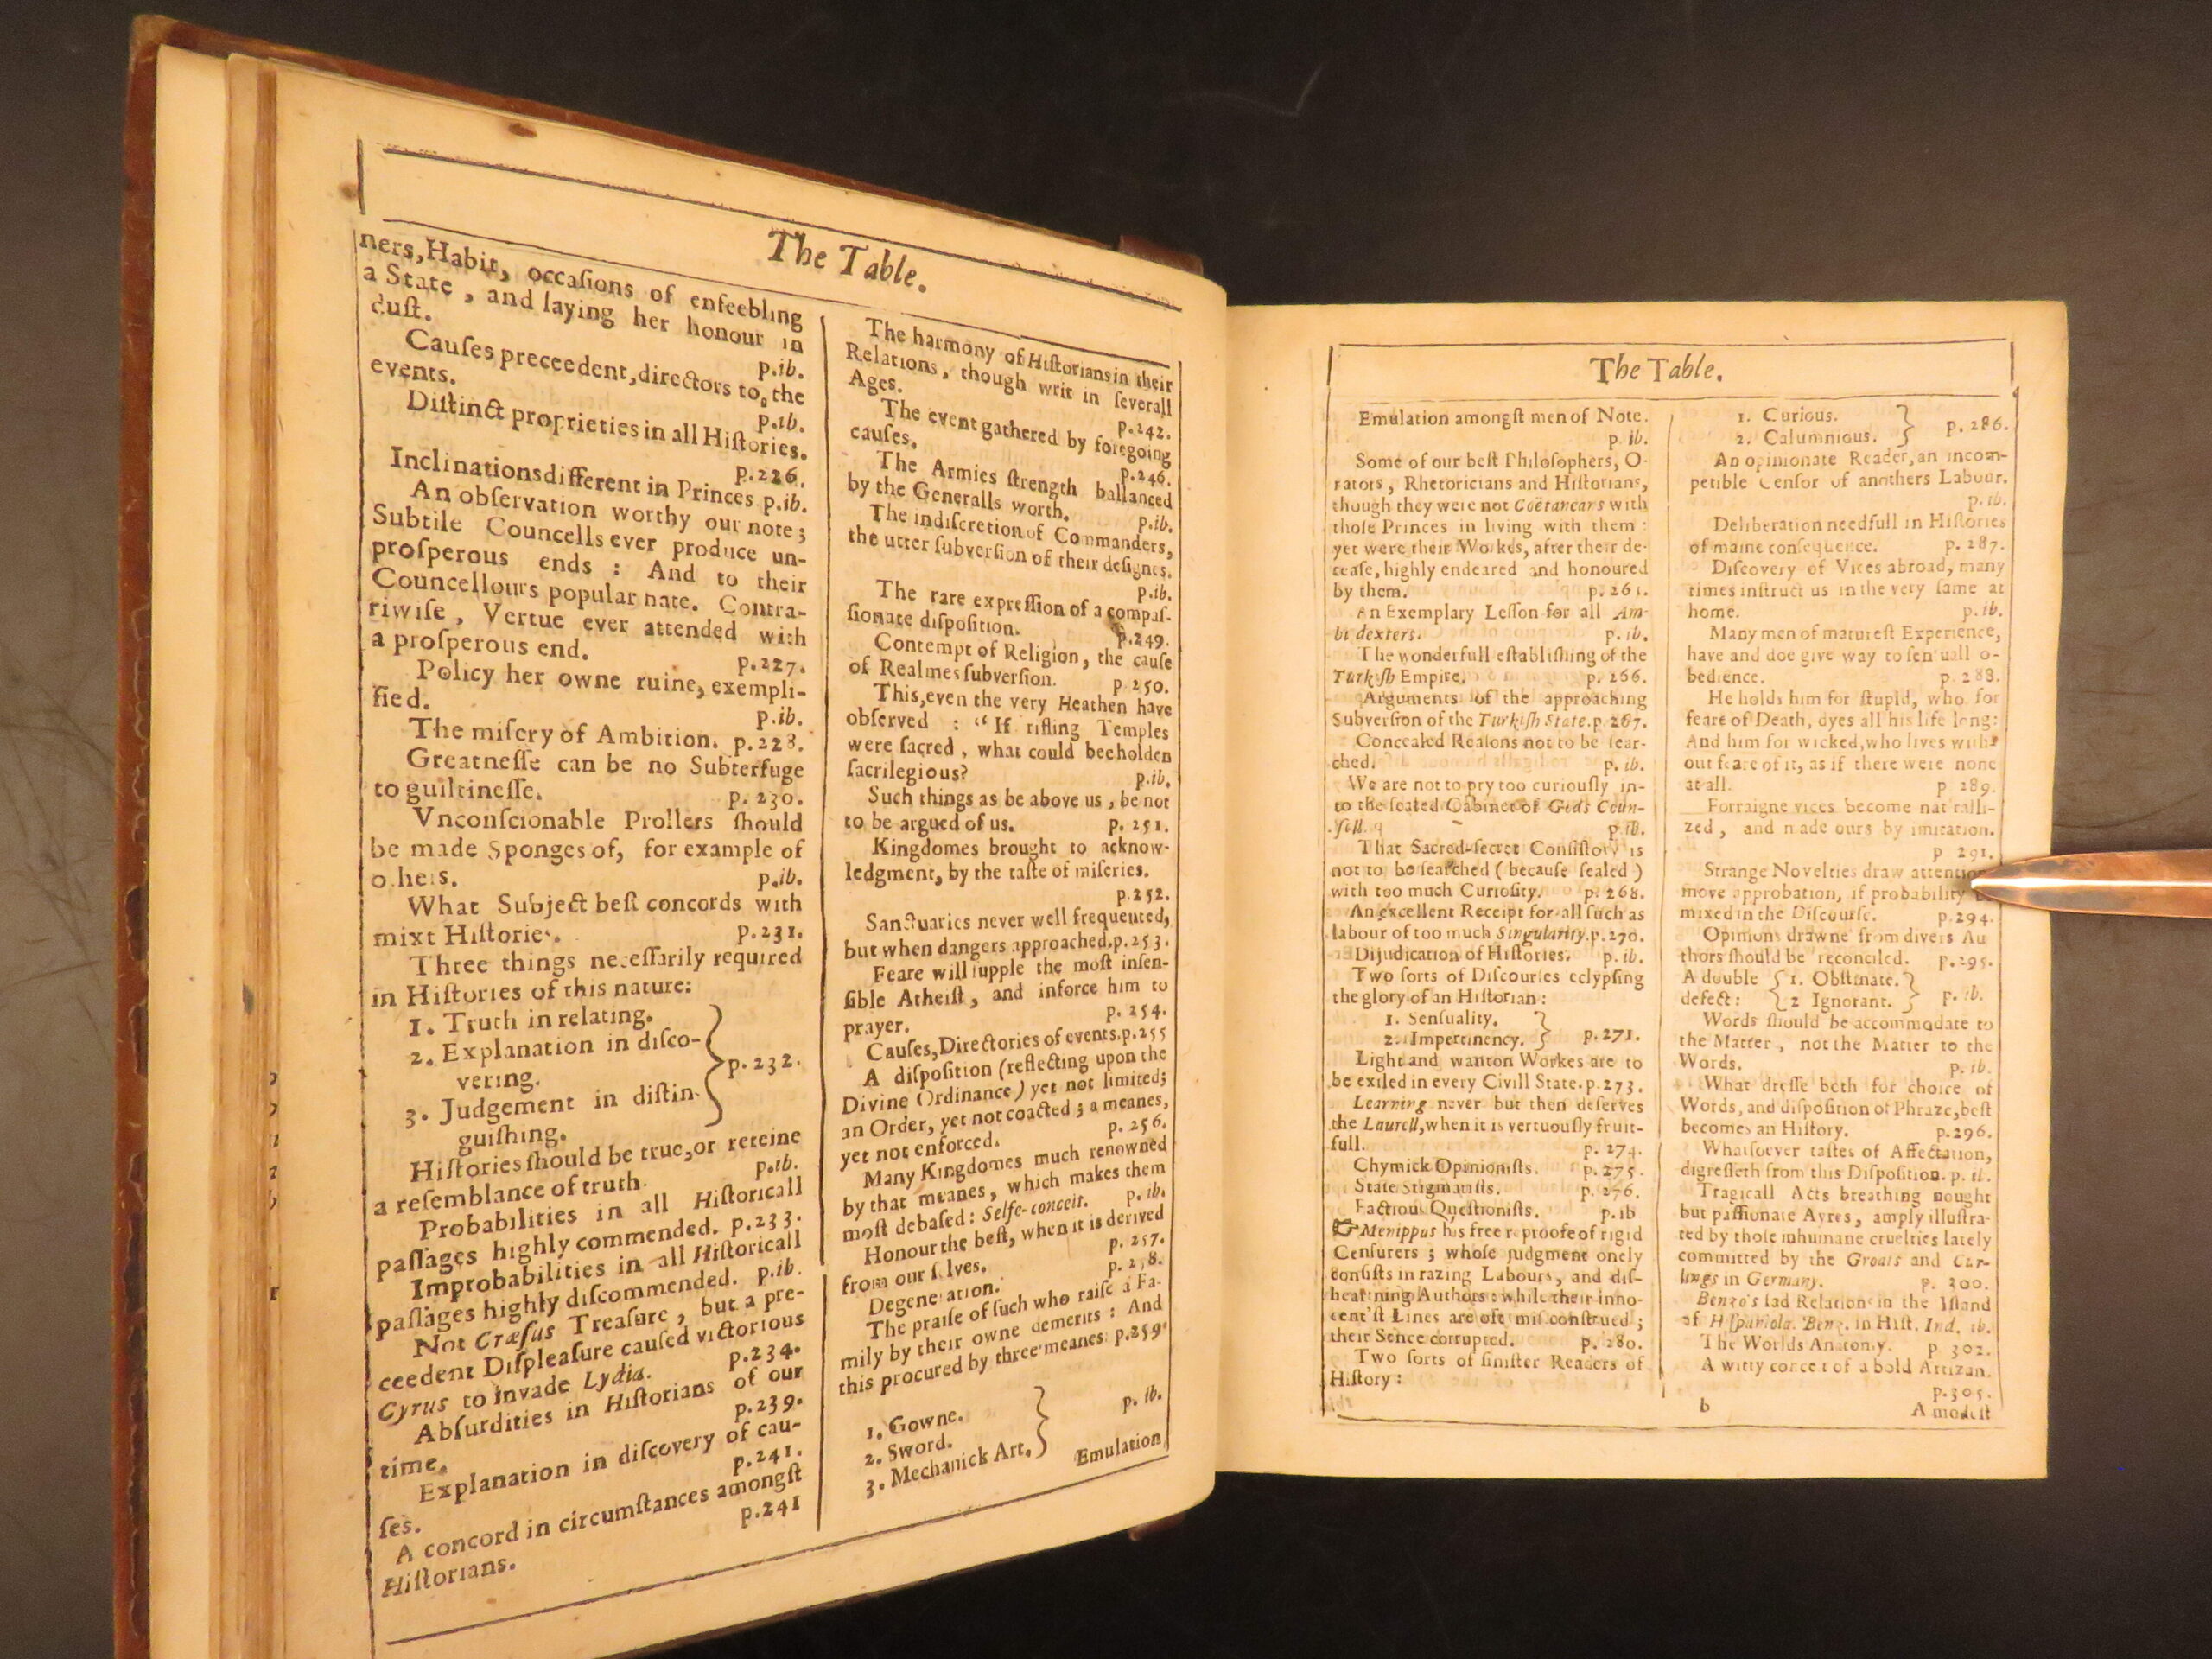 The Table.
ners, Habit, occaſions of enfeebling
a State , and laying her honour in
duſt. p.ib.
Cauſes preceedent, directors to the
events. p.ib.
Diſtinct proprieties in all Hiſtories.
p.226.
Inclinations different in Princes p.ib.
An obſervation worthy our note;
Subtile Councells ever produce un-
proſperous ends : And to their
Councellours popular hate. Contra-
riwiſe , Vertue ever attended with
a proſperous end. p.227.
Policy her owne ruine, exempli-
fied. p.ib.
The miſery of Ambition. p.228.
Greatneſſe can be no Subterfuge
to guiltineſſe. p. 230.
Vnconſcionable Prollers ſhould
be made Sponges of, for example of
others. p.ib.
What Subject beſt concords with
mixt Hiſtories. p.231.
Three things neceſſarily required
in Hiſtories of this nature:
1. Truth in relating.
2. Explanation in diſco-
vering. p.232.
3. Judgement in diſtin-
guiſhing.
Hiſtories ſhould be true, or reteine
a reſemblance of truth. p.ib.
Probabilities in all Hiſtoricall
paſſages highly commended. p.233.
Improbabilities in all Hiſtoricall
paſſages highly diſcommended. p.ib.
Not Cræſus Treaſure , but a pre-
ceedent Diſpleaſure cauſed victorious
Cyrus to invade Lydia. p.234.
Abſurdities in Hiſtorians of our
time. p.239.
Explanation in diſcovery of cau-
ſes. p.241.
A concord in circumſtances amongſt
Hiſtorians. p.241
The harmony of Hiſtorians in their
Relations, though writ in ſeverall
Ages. p.242.
The event gathered by foregoing
cauſes. p.246.
The Armies ſtrength ballanced
by the Generalls worth. p.ib.
The indiſcretion of Commanders,
the utter ſubverſion of their deſignes.
p.ib.
The rare expreſſion of a compaſ-
ſionate diſpoſition. p.249.
Contempt of Religion, the cauſe
of Realmes ſubverſion. p 250.
This, even the very Heathen have
obſerved : “ If rifling Temples
were ſacred , what could bee holden
ſacrilegious? p.ib.
Such things as be above us , be not
to be argued of us. p. 251.
Kingdomes brought to acknow-
ledgment, by the taſte of miſeries.
p.252.
Sanctuaries never well frequented,
but when dangers approached.p.253.
Feare will ſupple the moſt inſen-
ſible Atheiſt, and inforce him to
prayer. p. 254.
Cauſes, Directories of events.p.255
A diſpoſition (reflecting upon the
Divine Ordinance) yet not limited;
an Order, yet not coacted ; a meanes,
yet not enforced. p. 256.
Many Kingdomes much renowned
by that meanes, which makes them
moſt debaſed : Selfe-conceit. p. ib.
Honour the beſt, when it is derived
from our ſelves. p. 257.
Degeneration. p. 258.
The praiſe of ſuch who raiſe a Fa-
mily by their owne demerits : And
this procured by three meanes p.259
1. Gowne.
2. Sword. p. ib.
3. Mechanick Art.
Emulation
The Table.
Emulation amongſt men of Note.
p. ib.
Some of our beſt Philoſophers, O-
rators , Rhetoricians and Hiſtorians,
though they were not Coëtanears with
thoſe Princes in living with them :
yet were their Workes, after their de-
ceaſe, highly endeared and honoured
by them. p. 261.
An Exemplary Leſſon for all Am-
bi dexters. p. ib.
The wonderfull eſtabliſhing of the
Turkiſh Empire. p. 266.
Arguments of the approaching
Subverſion of the Turkiſh State.p 267.
Concealed Reaſons not to be ſear-
ched. p. ib.
We are not to pry too curiouſly in-
to the ſealed Cabinet of Gods Coun-
ſell. p ib.
That Sacred-ſecret Conſiſtory is
not to be ſearched ( becauſe ſealed )
with too much Curioſity. p. 268.
An excellent Receipt for all ſuch as
labour of too much Singularity.p.270.
Dijudication of Hiſtories. p. ib.
Two ſorts of Diſcourſes eclypſing
the glory of an Hiſtorian :
1. Senſuality.
2. Impertinency. p.271.
Light and wanton Workes are to
be exiled in every Civill State.p.273.
Learning never but then deſerves
the Laurell, when it is vertuouſly fruit-
full. p. 274.
Chymick Opinioniſts. p. 275.
State Stigmatiſts. p. 276.
Factious Queſtioniſts. p.ib
☞ Menippus his free reproofe of rigid
Cenſurers ; whoſe judgment onely
conſiſts in razing Labours, and diſ-
heartning Authors : while their inno-
cent'ſt Lines are oft miſconſtrued ;
their Sence corrupted. p. 280.
Two ſorts of ſiniſter Readers of
Hiſtory :
1. Curious.
2. Calumnious. p. 286.
An opinionate Reader, an incom-
petible Cenſor of anothers Labour.
p. ib.
Deliberation needfull in Hiſtories
of maine conſequence. p. 287.
Diſcovery of Vices abroad, many
times inſtruct us in the very ſame at
home. p. ib.
Many men of matureſt Experience,
have and doe give way to ſenſuall o-
bedience. p 288.
He holds him for ſtupid, who for
feare of Death, dyes all his life long:
And him for wicked, who lives with-
out feare of it, as if there were none
at all. p 289.
Forraigne vices become naturalli-
zed , and made ours by imitation.
p 291.
Strange Novelties draw attention
move approbation, if probability
mixed in the Diſcourſe. p.294.
Opinions drawne from divers Au
thors ſhould be reconciled. p.295.
A double 1. Obſtinate.
defect: 2 Ignorant. p. ib.
Words ſhould be accommodate to
the Matter , not the Matter to the
Words. p. ib.
What dreſſe beth for choice of
Words, and diſpoſition of Phraze, beſt
becomes an Hiſtory. p.296.
Whatſoever taſtes of Affectation,
digreſſeth from this Diſpoſition. p. ib.
Tragicall Acts breathing nought
but paſſionate Ayres, amply illuſtra-
ted by thoſe inhumane cruelties lately
committed by the Groats and Cur-
lings in Germany. p. 300.
Benzo's ſad Relations in the Iſland
of Hiſpaniola. Benz. in Hiſt. Ind. ib.
The Worlds Anatomy. p 302.
A witty conceit of a bold Artizan.
p.305.
b A modeſt